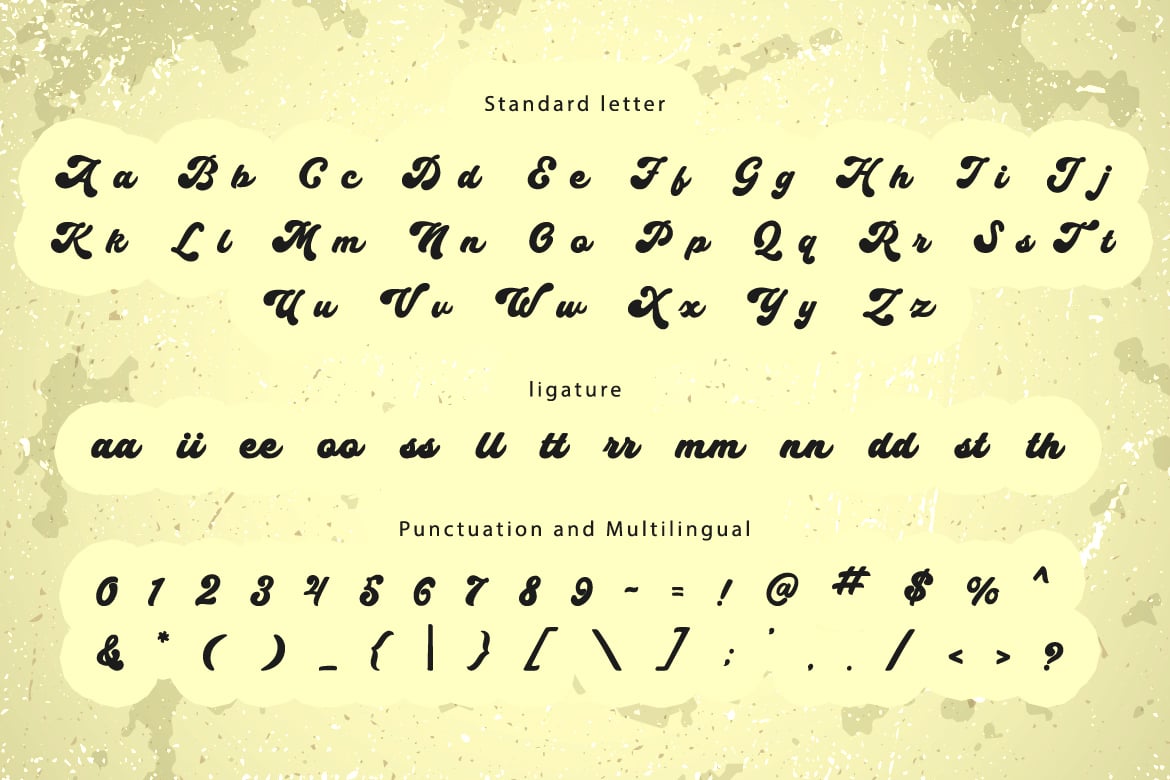 Standard letter
A a B b C c D d E e F f G g H h I i J j
K k L l M m N n O o P p Q q R r S s T t
U u V v W w X x Y y Z z
ligature
aa ii ee oo ss ll tt rr mm nn dd st th
Punctuation and Multilingual
0 1 2 3 4 5 6 7 8 9 ~ = ! @ # $ % ^
& * ( ) _ { | } [ \ ] ; ' , . / < > ?